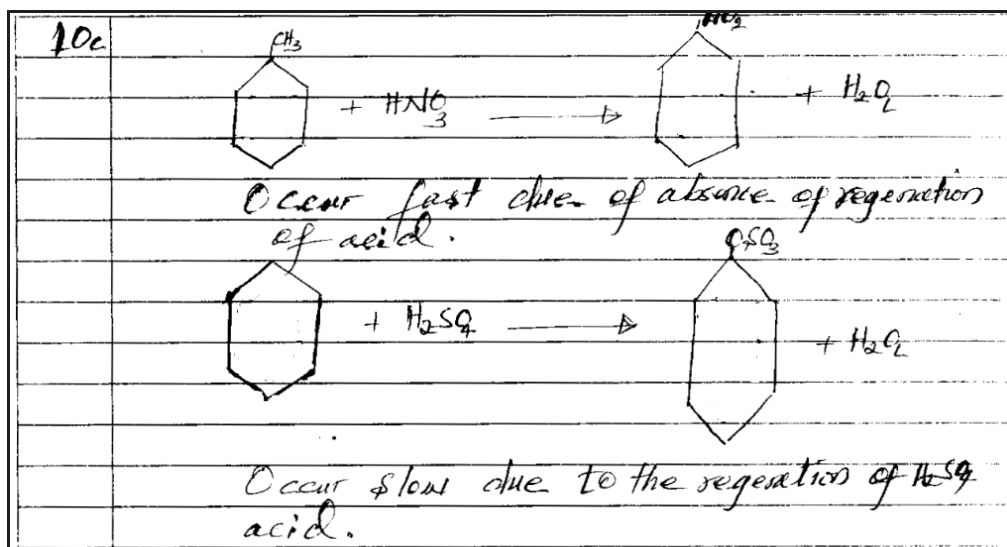 10c
CH3
+ HNO3
NO2
+ H2O2
Occur fast due of absence of regeration
of acid.
OSO3
+ H2SO4
+ H2O2
Occur slow due to the regeration of H2SO4
acid.